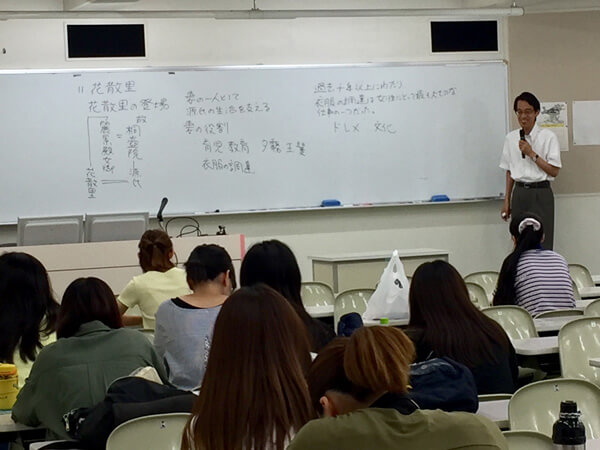 11 花散里
花散里の登場
故
桐壺院 — 源氏
麗景殿女御
花散里
妻の一人として
源氏の生活を支える
妻の役割
育児 教育 夕霧 玉鬘
衣服の調達
過去千年以上にわたり
衣服の調達は女性にとって最も大切な
仕事の一つだった。
ドレメ 文化